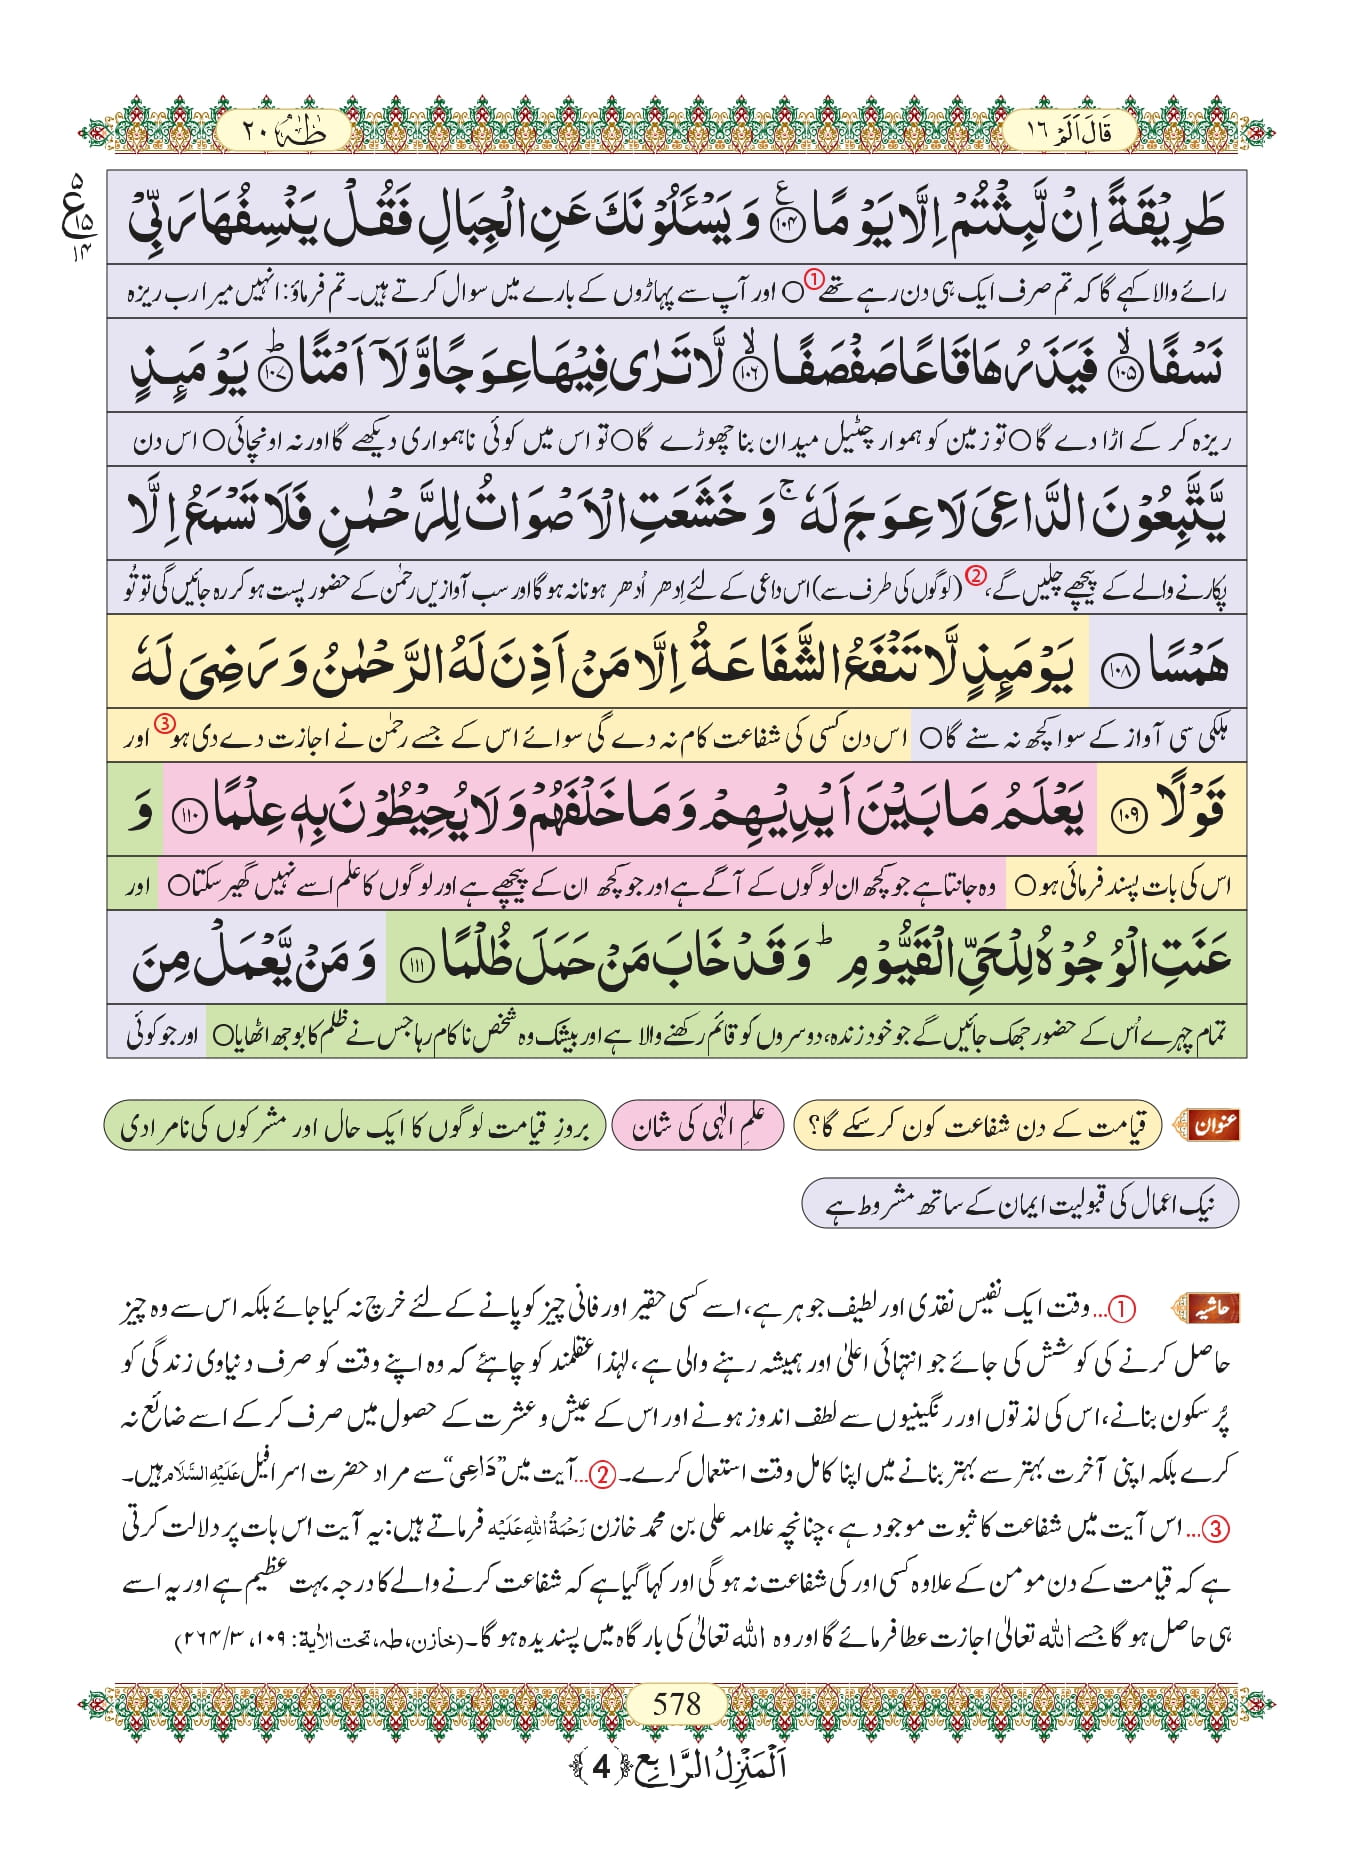 قَالَ اَلَمْ ۱٦
طٰهٰ ۲۰
طَرِیْقَةً اِنْ لَّبِثْتُمْ اِلَّا یَوْمًا ﴿۱۰۴﴾ ع وَ یَسْـَٔلُوْنَكَ عَنِ الْجِبَالِ فَقُلْ یَنْسِفُهَا رَبِّیْ
ع ۵ ۱۵ ۱۴
رائے والا کہے گا کہ تم صرف ایک ہی دن رہے تھے ① ○ اور آپ سے پہاڑوں کے بارے میں سوال کرتے ہیں۔ تم فرماؤ: انہیں میرا رب ریزہ
نَسْفًا ﴿۱۰۵﴾ۙ فَیَذَرُهَا قَاعًا صَفْصَفًا ﴿۱۰٦﴾ۙ لَّا تَرٰى فِیْهَا عِوَجًا وَّ لَاۤ اَمْتًا ﴿۱۰۷﴾ؕ یَوْمَىٕذٍ
ریزہ کر کے اڑا دے گا ○ تو زمین کو ہموار چٹیل میدان بنا چھوڑے گا ○ تو اس میں کوئی ناہمواری دیکھے گا اور نہ اونچائی ○ اس دن
یَّتَّبِعُوْنَ الدَّاعِیَ لَا عِوَجَ لَهٗ ۚ وَ خَشَعَتِ الْاَصْوَاتُ لِلرَّحْمٰنِ فَلَا تَسْمَعُ اِلَّا
پکارنے والے کے پیچھے چلیں گے، ② (لوگوں کی طرف سے) اس داعی کے لئے اِدھر اُدھر ہونا نہ ہوگا اور سب آوازیں رحمٰن کے حضور پست ہو کر رہ جائیں گی تو تُو
هَمْسًا ﴿۱۰۸﴾ یَوْمَىٕذٍ لَّا تَنْفَعُ الشَّفَاعَةُ اِلَّا مَنْ اَذِنَ لَهُ الرَّحْمٰنُ وَ رَضِیَ لَهٗ
ہلکی سی آواز کے سوا کچھ نہ سنے گا ○ اس دن کسی کی شفاعت کام نہ دے گی سوائے اس کے جسے رحمٰن نے اجازت دے دی ہو ③ اور
قَوْلًا ﴿۱۰۹﴾ یَعْلَمُ مَا بَیْنَ اَیْدِیْهِمْ وَ مَا خَلْفَهُمْ وَ لَا یُحِیْطُوْنَ بِهٖ عِلْمًا ﴿۱۱۰﴾ وَ
اس کی بات پسند فرمائی ہو ○ وہ جانتا ہے جو کچھ ان لوگوں کے آگے ہے اور جو کچھ ان کے پیچھے ہے اور لوگوں کا علم اسے نہیں گھیر سکتا ○ اور
عَنَتِ الْوُجُوْهُ لِلْحَیِّ الْقَیُّوْمِ ؕ وَ قَدْ خَابَ مَنْ حَمَلَ ظُلْمًا ﴿۱۱۱﴾ وَ مَنْ یَّعْمَلْ مِنَ
تمام چہرے اُس کے حضور جھک جائیں گے جو خود زندہ، دوسروں کو قائم رکھنے والا ہے اور بیشک وہ شخص ناکام رہا جس نے ظلم کا بوجھ اٹھایا ○ اور جو کوئی
عنوان قیامت کے دن شفاعت کون کر سکے گا؟ علمِ الٰہی کی شان بروزِ قیامت لوگوں کا ایک حال اور مشرکوں کی نامرادی
نیک اعمال کی قبولیت ایمان کے ساتھ مشروط ہے
حاشیہ ①... وقت ایک نفیس نقدی اور لطیف جوہر ہے، اسے کسی حقیر اور فانی چیز کو پانے کے لئے خرچ نہ کیا جائے بلکہ اس سے وہ چیز
حاصل کرنے کی کوشش کی جائے جو انتہائی اعلیٰ اور ہمیشہ رہنے والی ہے، لہٰذا عقلمند کو چاہئے کہ وہ اپنے وقت کو صرف دنیاوی زندگی کو
پُر سکون بنانے، اس کی لذتوں اور رنگینیوں سے لطف اندوز ہونے اور اس کے عیش و عشرت کے حصول میں صرف کر کے اسے ضائع نہ
کرے بلکہ اپنی آخرت بہتر سے بہتر بنانے میں اپنا کامل وقت استعمال کرے۔ ②... آیت میں ”دَاعِی“ سے مراد حضرت اسرافیل عَلَیْهِ السَّلَام ہیں۔
③... اس آیت میں شفاعت کا ثبوت موجود ہے، چنانچہ علامہ علی بن محمد خازن رَحْمَةُ اللهِ عَلَیْه فرماتے ہیں: یہ آیت اس بات پر دلالت کرتی
ہے کہ قیامت کے دن مومن کے علاوہ کسی اور کی شفاعت نہ ہوگی اور کہا گیا ہے کہ شفاعت کرنے والے کا درجہ بہت عظیم ہے اور یہ اسے
ہی حاصل ہو گا جسے اللہ تعالیٰ اجازت عطا فرمائے گا اور وہ اللہ تعالیٰ کی بارگاہ میں پسندیدہ ہو گا۔ (خازن، طہ، تحت الاٰیة: ۱۰۹، ۳/۲۶۴)
578
اَلْمَنْزِلُ الرَّابِع ﴿4﴾